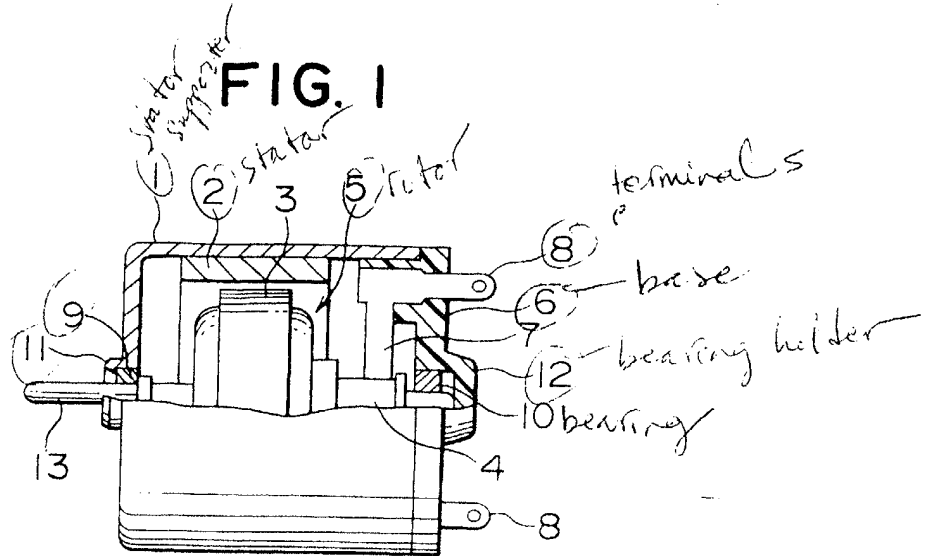 FIG. 1
stator
supporter
1
2 stator
3
5 rotor
terminals
8
6 base
7
9
11
12 bearing holder
10 bearing
13
4
8